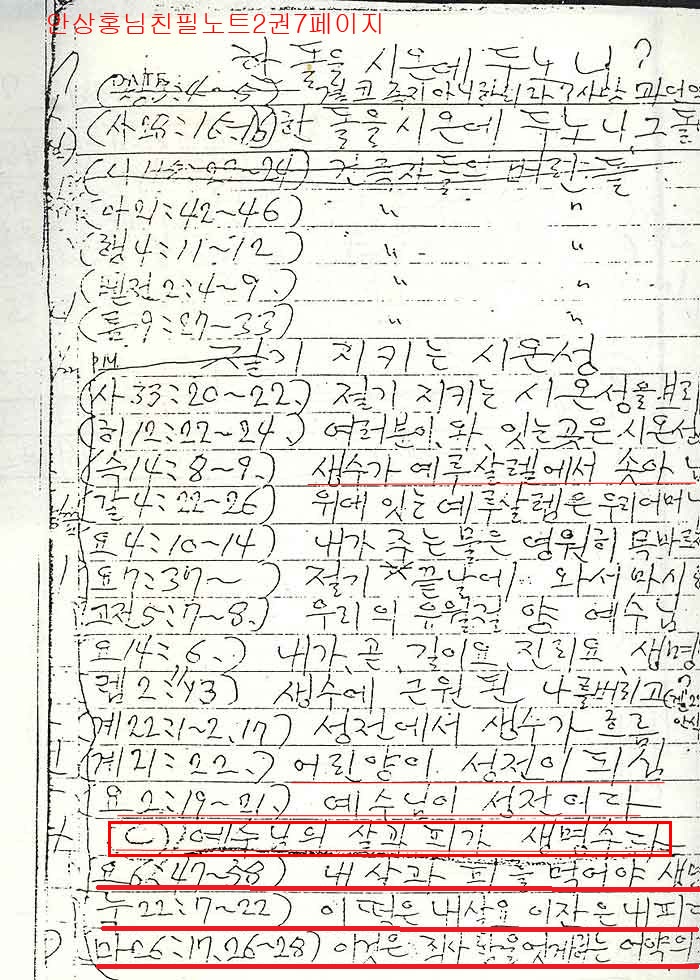 안상홍님친필노트2권7페이지
한 돌을 시온에 두노니?
DATE
결코
한 돌을 시온에 두노니, 그 돌
건축자들의 버린 돌
(마 21:42~46) 〃 〃
(행 4:11~12) 〃 〃
(벧전 2:4~9.) 〃 〃
(롬 9:27~33) 〃 〃
P.M. 절기 지키는 시온성
(사 33:20~22.) 절기 지키는 시온성을 보라
(히 12:22~24.) 여러분이, 와, 잇는 곳은 시온성
(슥 14:8~9.) 생수가 예루살렘에서 솟아 나
(갈 4:22~26) 위에 잇는 예루살렘은 우리 어머니
(요 4:10~14) 내가 주는 물은 영원히 목마르
(요 7:37~ ) 절기 끝날에, 와서 마시
(고전 5:7~8.) 우리의 유월절 양 예수님
(요 14:6.) 내가, 곧, 길이요, 진리요, 생명
(렘 2:13) 생수에 근원 된 나를 버리고
(계 22:1~2, 17) 성전에서 생수가 흐르
(계 21:22.) 어린양이 성전이 되심
요 2:19~21.) 예수님이 성전이다
C) 예수님의 살과 피가 생명수다
요 6:47~58) 내 살과 피를 먹어야 생명
눅 22:7~22) 이 떡은 내 살요 이 잔은 내 피다
(마 26:17, 26~28) 이것은